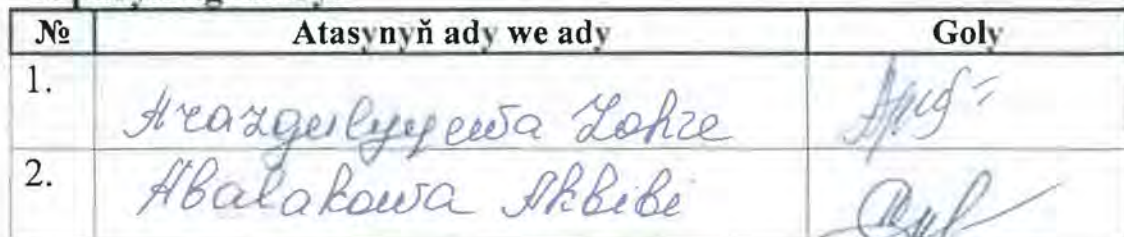 № Atasynyň ady we ady Goly
1. Arazgulyyewa Zohre
2. Abalakowa Akbibi